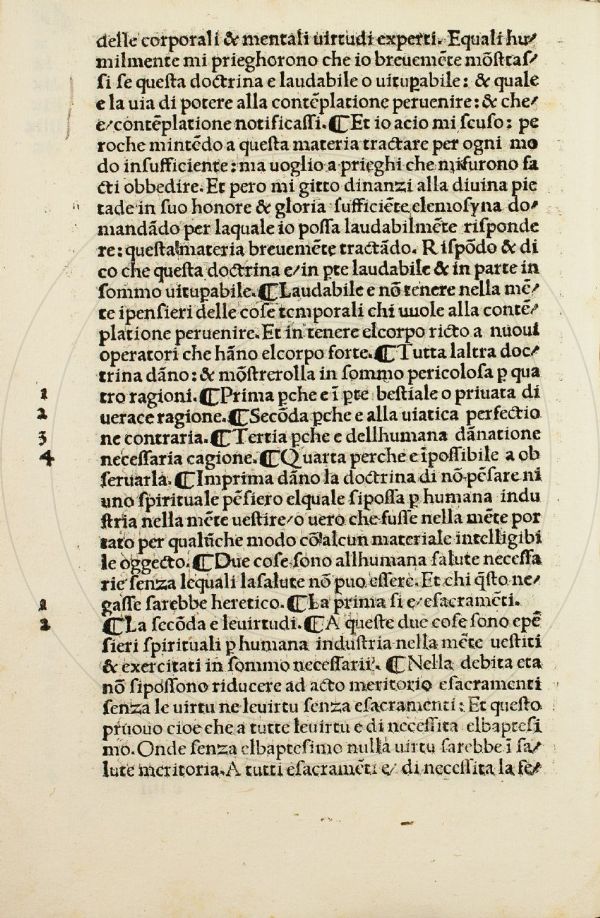 delle corporali & mentali uirtudi experti. Equali hu⸗
milmente mi prieghorono che io breuemẽte mõſtraſ⸗
ſi ſe queſta doctrina e laudabile o uituꝑabile: & quale
e la uia di potere alla contẽplatione peruenire: & che⸗
e/contẽplatione notificaſſi. ¶Et io acio mi ſcuſo: pe
roche mintẽdo a queſta materia tractare per ogni mo
do inſufficiente: ma uoglio a prieghi che mi furono fa
cti obbedire. Et pero mi gitto dinanzi alla diuina pie
tade in ſuo honore & gloria ſufficiẽte elemoſyna do⸗
mandãdo per laquale io poſſa laudabilmẽte riſponde
re: queſta materia breuemẽte tractãdo. Riſpõdo & di
co che queſta doctrina e/in ꝑte laudabile & in parte in
ſommo uituꝑabile. ¶Laudabile e nõ tenere nella mẽ⸗
te ipenſieri delle coſe temporali chi uuole alla contẽ⸗
platione peruenire. Et in tenere elcorpo ricto a nuoui
operatori che hãno elcorpo forte. ¶Tutta laltra doc⸗
trina dãno: & mõſtrerolla in ſommo pericoloſa ꝑ qua
tro ragioni. ¶Prima ꝑche e ĩ ꝑte beſtiale o priuata di
1
uerace ragione. ¶Secõda ꝑche e alla uiatica perfectio
2
ne contraria. ¶Tertia ꝑche e dellhumana dãnatione
3
neceſſaria cagione. ¶Quarta perche e ĩpoſſibile a ob
4
ſeruarla. ¶Imprima dãno la doctrina di nõ pẽſare ni
uno ſpirituale pẽſiero elquale ſipoſſa ꝑ humana indu
ſtria nella mẽte ueſtire/o uero che fuſſe nella mẽte por
tato per qualũche modo cõ alcun materiale intelligibi
le oggecto. ¶Due coſe ſono allhumana ſalute neceſſa
rie ſenza lequali laſalute nõ puo eſſere. Et chi q̃ſto ne⸗
gaſſe ſarebbe heretico. ¶La prima ſi e/eſacramẽti.
1
¶La ſecõda e leuirtudi. ¶A queſte due coſe ſono epẽ
2
ſieri ſpirituali ꝑ humana induſtria nella mẽte ueſtiti
& exercitati in ſommo neceſſarii. ¶Nella debita eta
nõ ſipoſſono riducere ad acto meritorio eſacramenti
ſenza le uirtu ne leuirtu ſenza eſacramenti: Et queſto
pruouo cioe che a tutte leuirtu e di neceſſita elbapteſi
mo. Onde ſenza elbapteſimo nulla uirtu ſarebbe ĩ ſa⸗
lute meritoria. A tutti eſacramẽti e/ di neceſſita la fe⸗